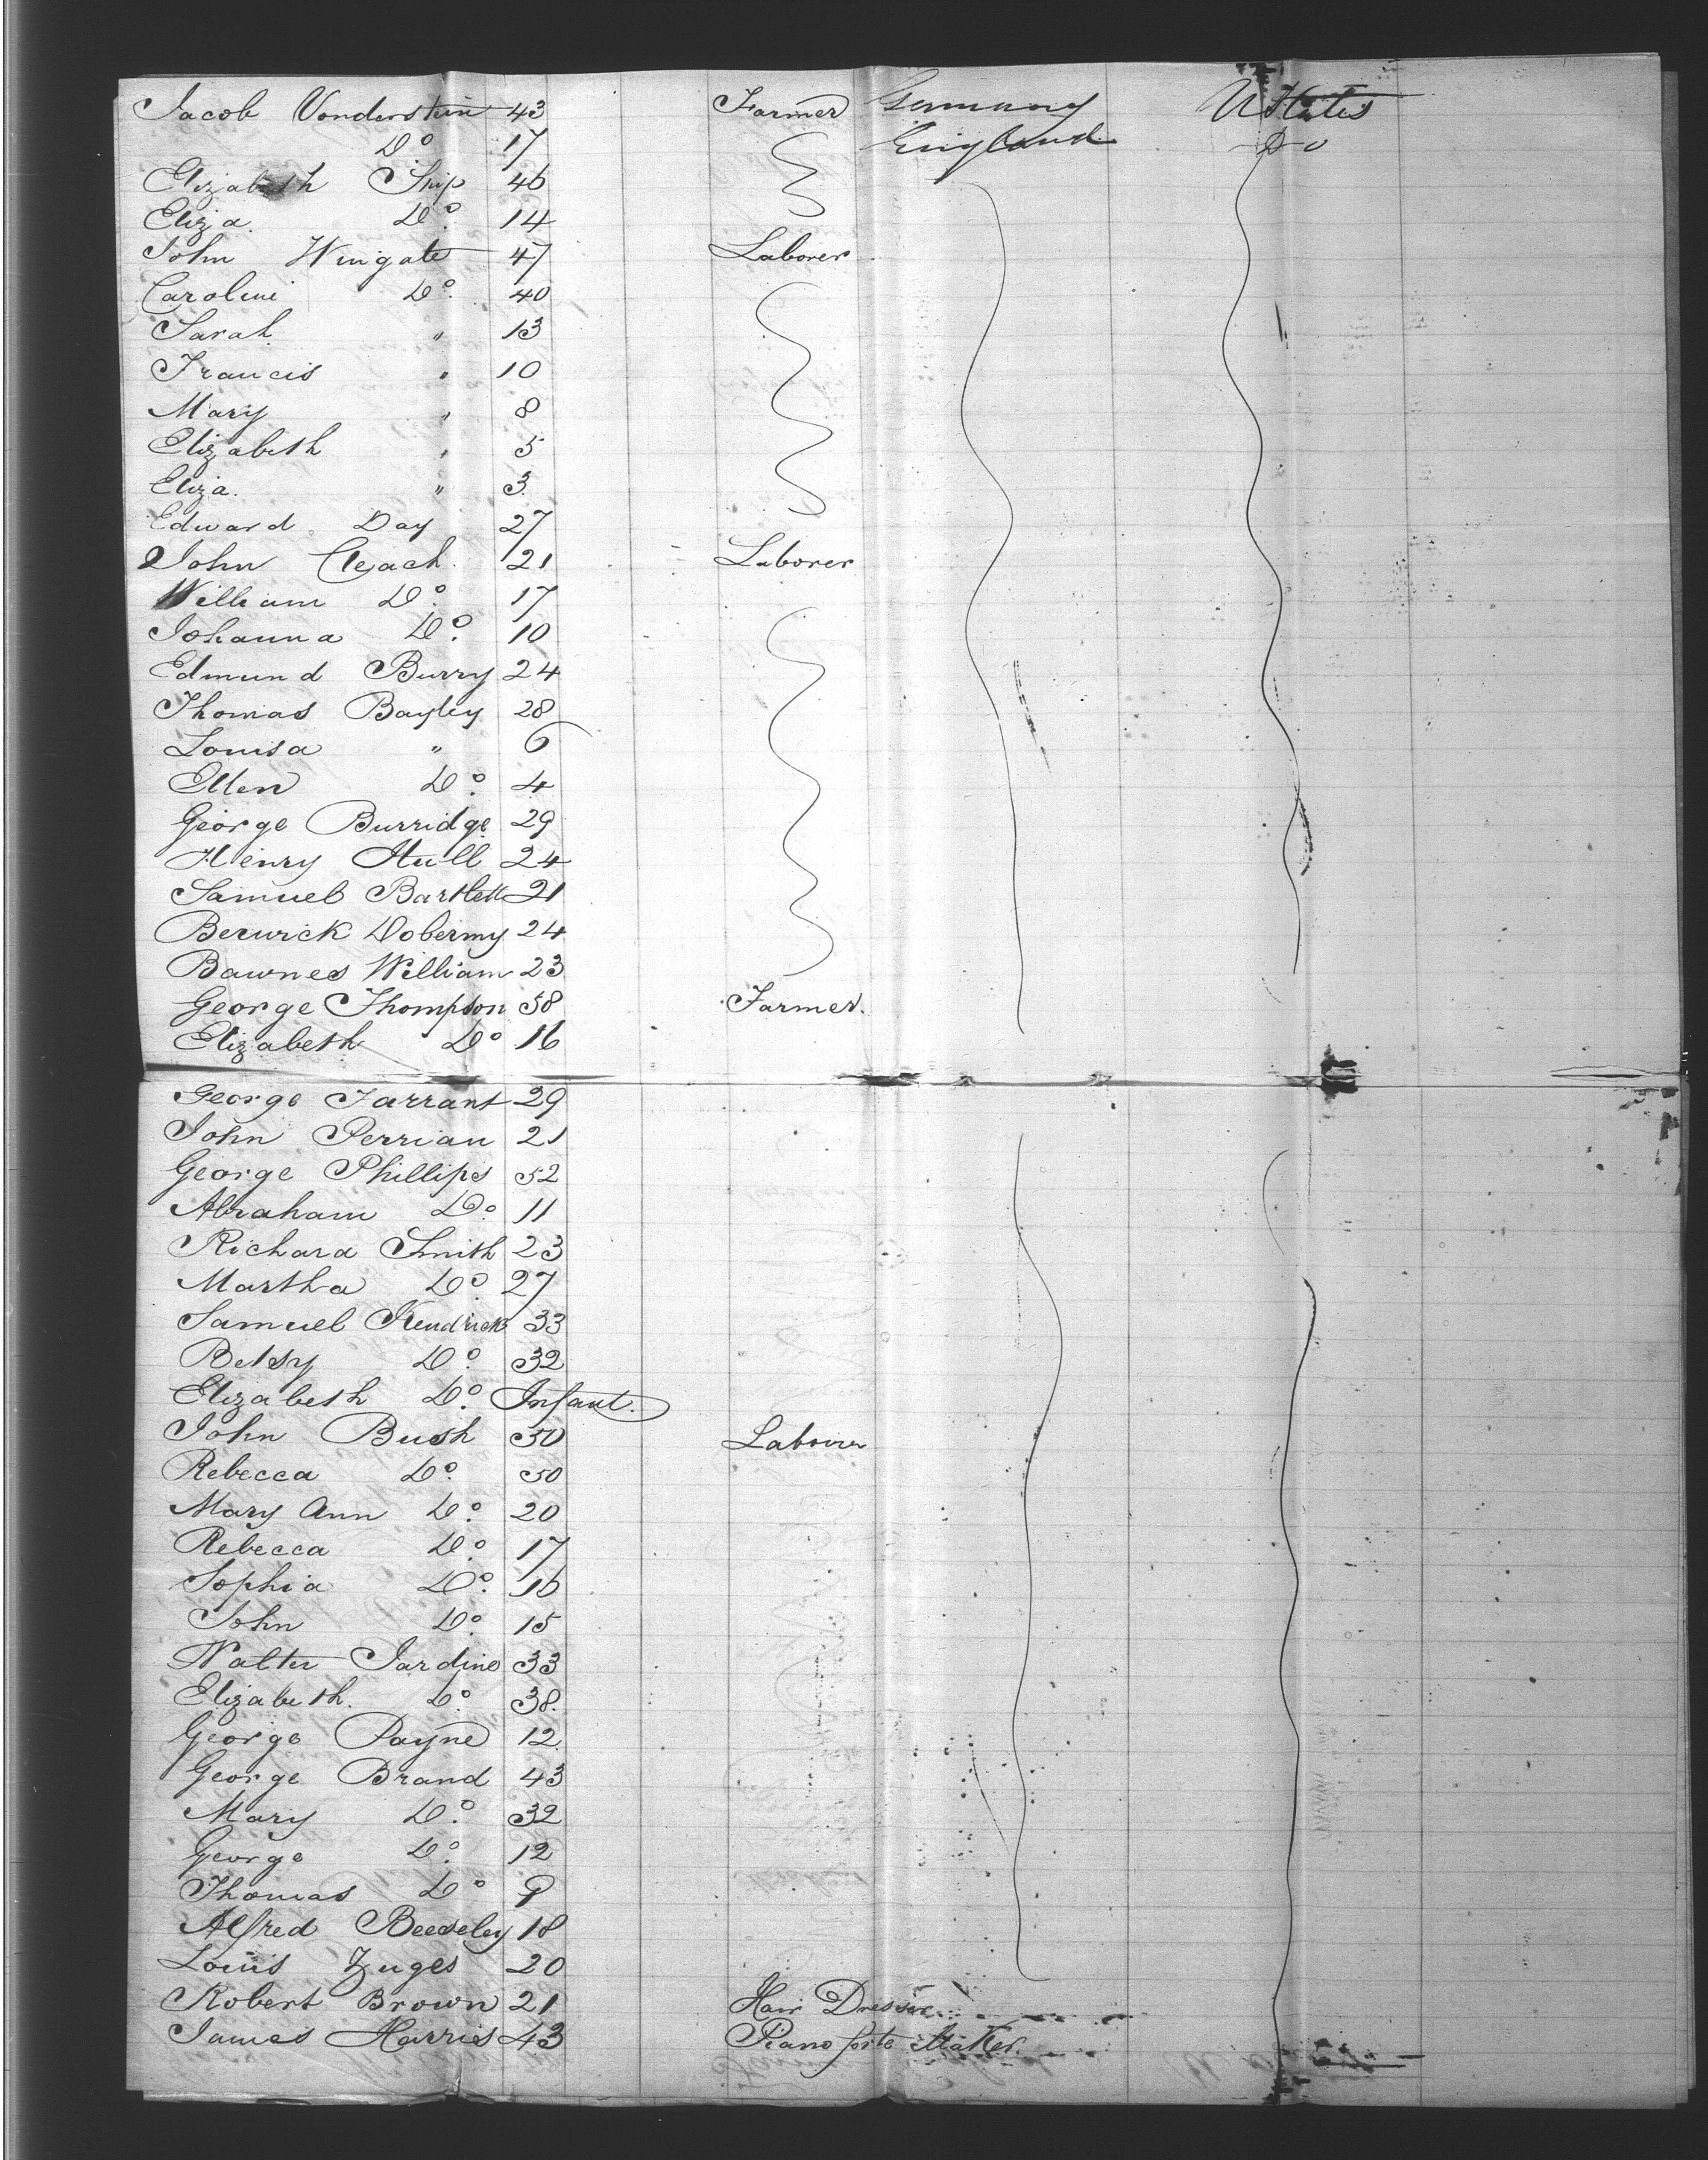 Jacob Vonderstein 43 Farmer Germany U States
Do 17 England Do
Elizabeth Ship 46
Eliza Do 14
John Wingate 47 Laborer
Caroline Do 40
Sarah " 13
Francis " 10
Mary " 8
Elizabeth " 5
Eliza " 3
Edward Day 27
John Cleach 21 Laborer
William Do 17
Johanna Do 10
Edmund Burry 24
Thomas Bayley 28
Louisa " 6
Ellen Do 4
George Burridge 29
Henry Hull 24
Samuel Bartlett 21
Berwick Dobermy 24
Bawnes William 23
George Thompson 58 Farmer
Elizabeth Do 16
George Farrant 29
John Perrian 21
George Phillips 52
Abraham Do 11
Richard Smith 23
Martha Do 27
Samuel Kendrick 33
Betsy Do 32
Elizabeth Do Infant
John Bush 50 Labourer
Rebecca Do 50
Mary Ann Do 20
Rebecca Do 17
Sophia Do 16
John Do 15
Walter Jardine 33
Elizabeth Do 38
George Payne 12
George Brand 43
Mary Do 32
George Do 12
Thomas Do 9
Alfred Beeseley 18
Louis Zuges 20
Robert Brown 21 Hair Dresser
James Harris 43 Piano forte Maker